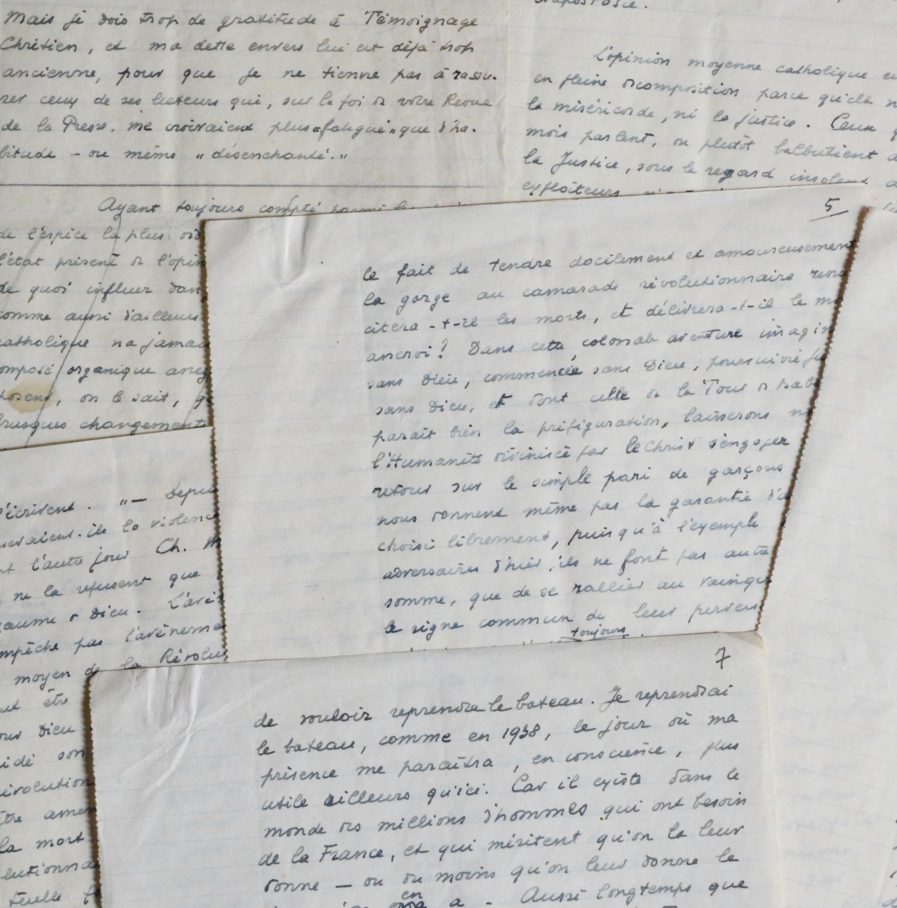 Mais je dois trop de gratitude à Témoignage
Chrétien, et ma dette envers lui est déjà trop
ancienne, pour que je ne tienne pas à rassu-
rer ceux de ses lecteurs qui, sur la foi de votre Revue
de la Presse, me croiraient plus "fatigué" que d'ha-
bitude – ou même "désenchanté."
Ayant toujours compté parmi
de l'espèce la plus
l'état présent de l'opin
de quoi influer dans
comme aussi d'ailleurs
catholique n'a jamais
omposé organique
posent, on le sait, q
brusques changements
L'opinion moyenne catholique e
en pleine décomposition parce qu'elle n
la miséricorde, ni la justice. Ceux q
mois parlent, ou plutôt balbutient d
la Justice, sous le regard insolent d
exploiteurs
5
le fait de tendre docilement et amoureusement
la gorge au camarade révolutionnaire
citera-t-il les morts, et délivrera-t-il le
Dans cette colossale aventure imagin
sans Dieu, commencée sans Dieu, poursuivie
sans Dieu, et dont celle de la Tour de Babe
paraît bien la préfiguration, laisserons n
l'Humanité divinisée par le Christ s'engager
retour sur le simple pari de garçons
nous donnent même pas la garantie d'a
choisi librement, puisqu'à l'exemple
adversaires d'hier, ils ne font pas autre
somme, que de se rallier au vainqu
le signe commun de leur
toujours
écrivent. "– Depuis
seraient-ils la violence
nt l'auto jour Ch.
ne la refusent que
aume de Dieu. L'avè
mpêche pas l'avèneme
moyen de la Révolu
ut être
our Dieu
idé son
révolution
être amen
la mort
olutionna
7
de vouloir reprendre le bateau. Je reprendrai
le bateau, comme en 1938, le jour où ma
présence me paraîtra, en conscience, plus
utile ailleurs qu'ici. Car il existe dans le
monde des millions d'hommes qui ont besoin
de la France, et qui méritent qu'on la leur
donne – ou du moins qu'on leur donne le
en
a. Aussi longtemps que